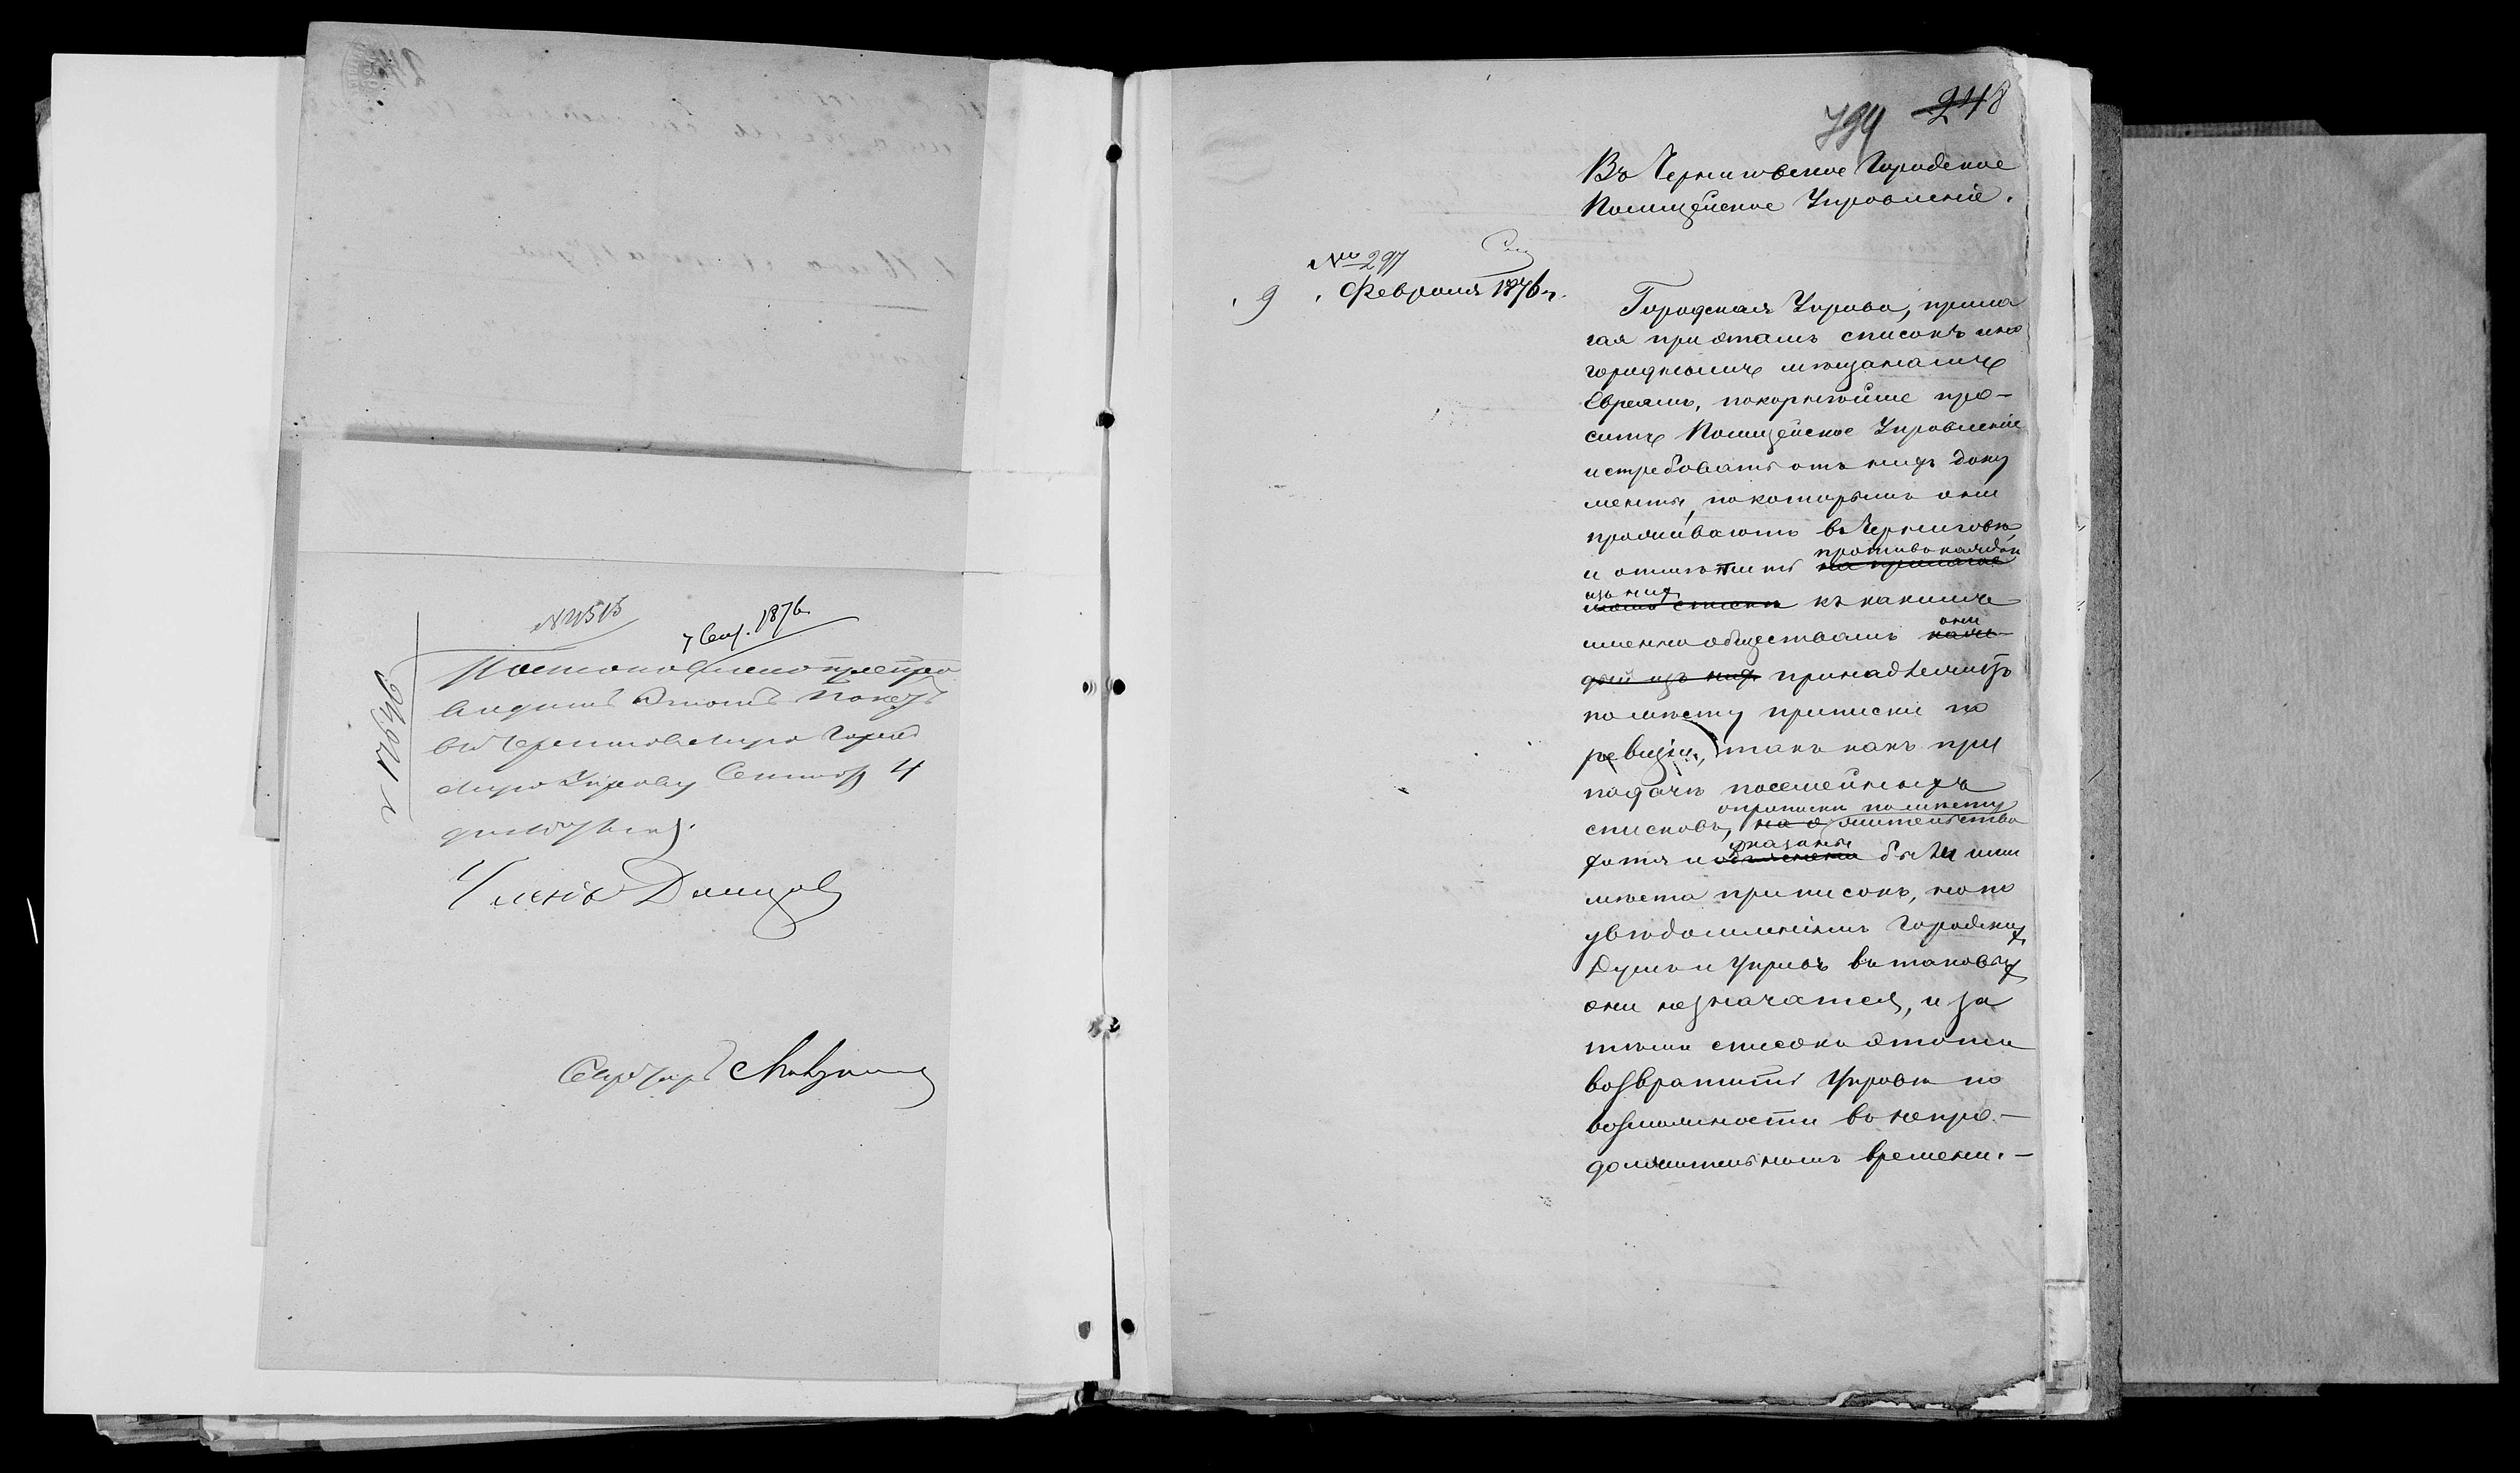 № 4515
7 Сен. 1876
Постановлено препро
водить этотъ пакетъ
въ Черниговскую Город
скую Управу Сентяб 4
Членъ
Секретарь
№ 12596
794 248
Въ Черниговское Городское
Полицейское Управленіе.
№ 297
9 Февраля 1876 г.
Городская Управа, прила
гая при этомъ списокъ ино
городнымъ мѣщанамъ
Евреямъ, покорнѣйше про-
ситъ Полицейское Управленіе
истребовать отъ нихъ доку
менты, по которымъ они
проживаютъ въ Черниговѣ
противъ каждаго
и отмѣтить на прилагае
изъ нихъ
момъ спискѣ къ какимъ
они
именно обществамъ каж-
дый изъ нихъ принадлежатъ
по мѣсту приписки по
ревизіи, такъ какъ при
подачѣ посемейныхъ
о припискѣ по мѣсту
списковъ, на о жительства
указаны
хотя и объяснены были ими
мѣста приписокъ, но по
увѣдомленіямъ Городских
Думъ и Управъ въ таковых
они не значатся, и за
тѣмъ списокъ этотъ
возвратить Управѣ по
возможности въ непро-
должительномъ времени.-